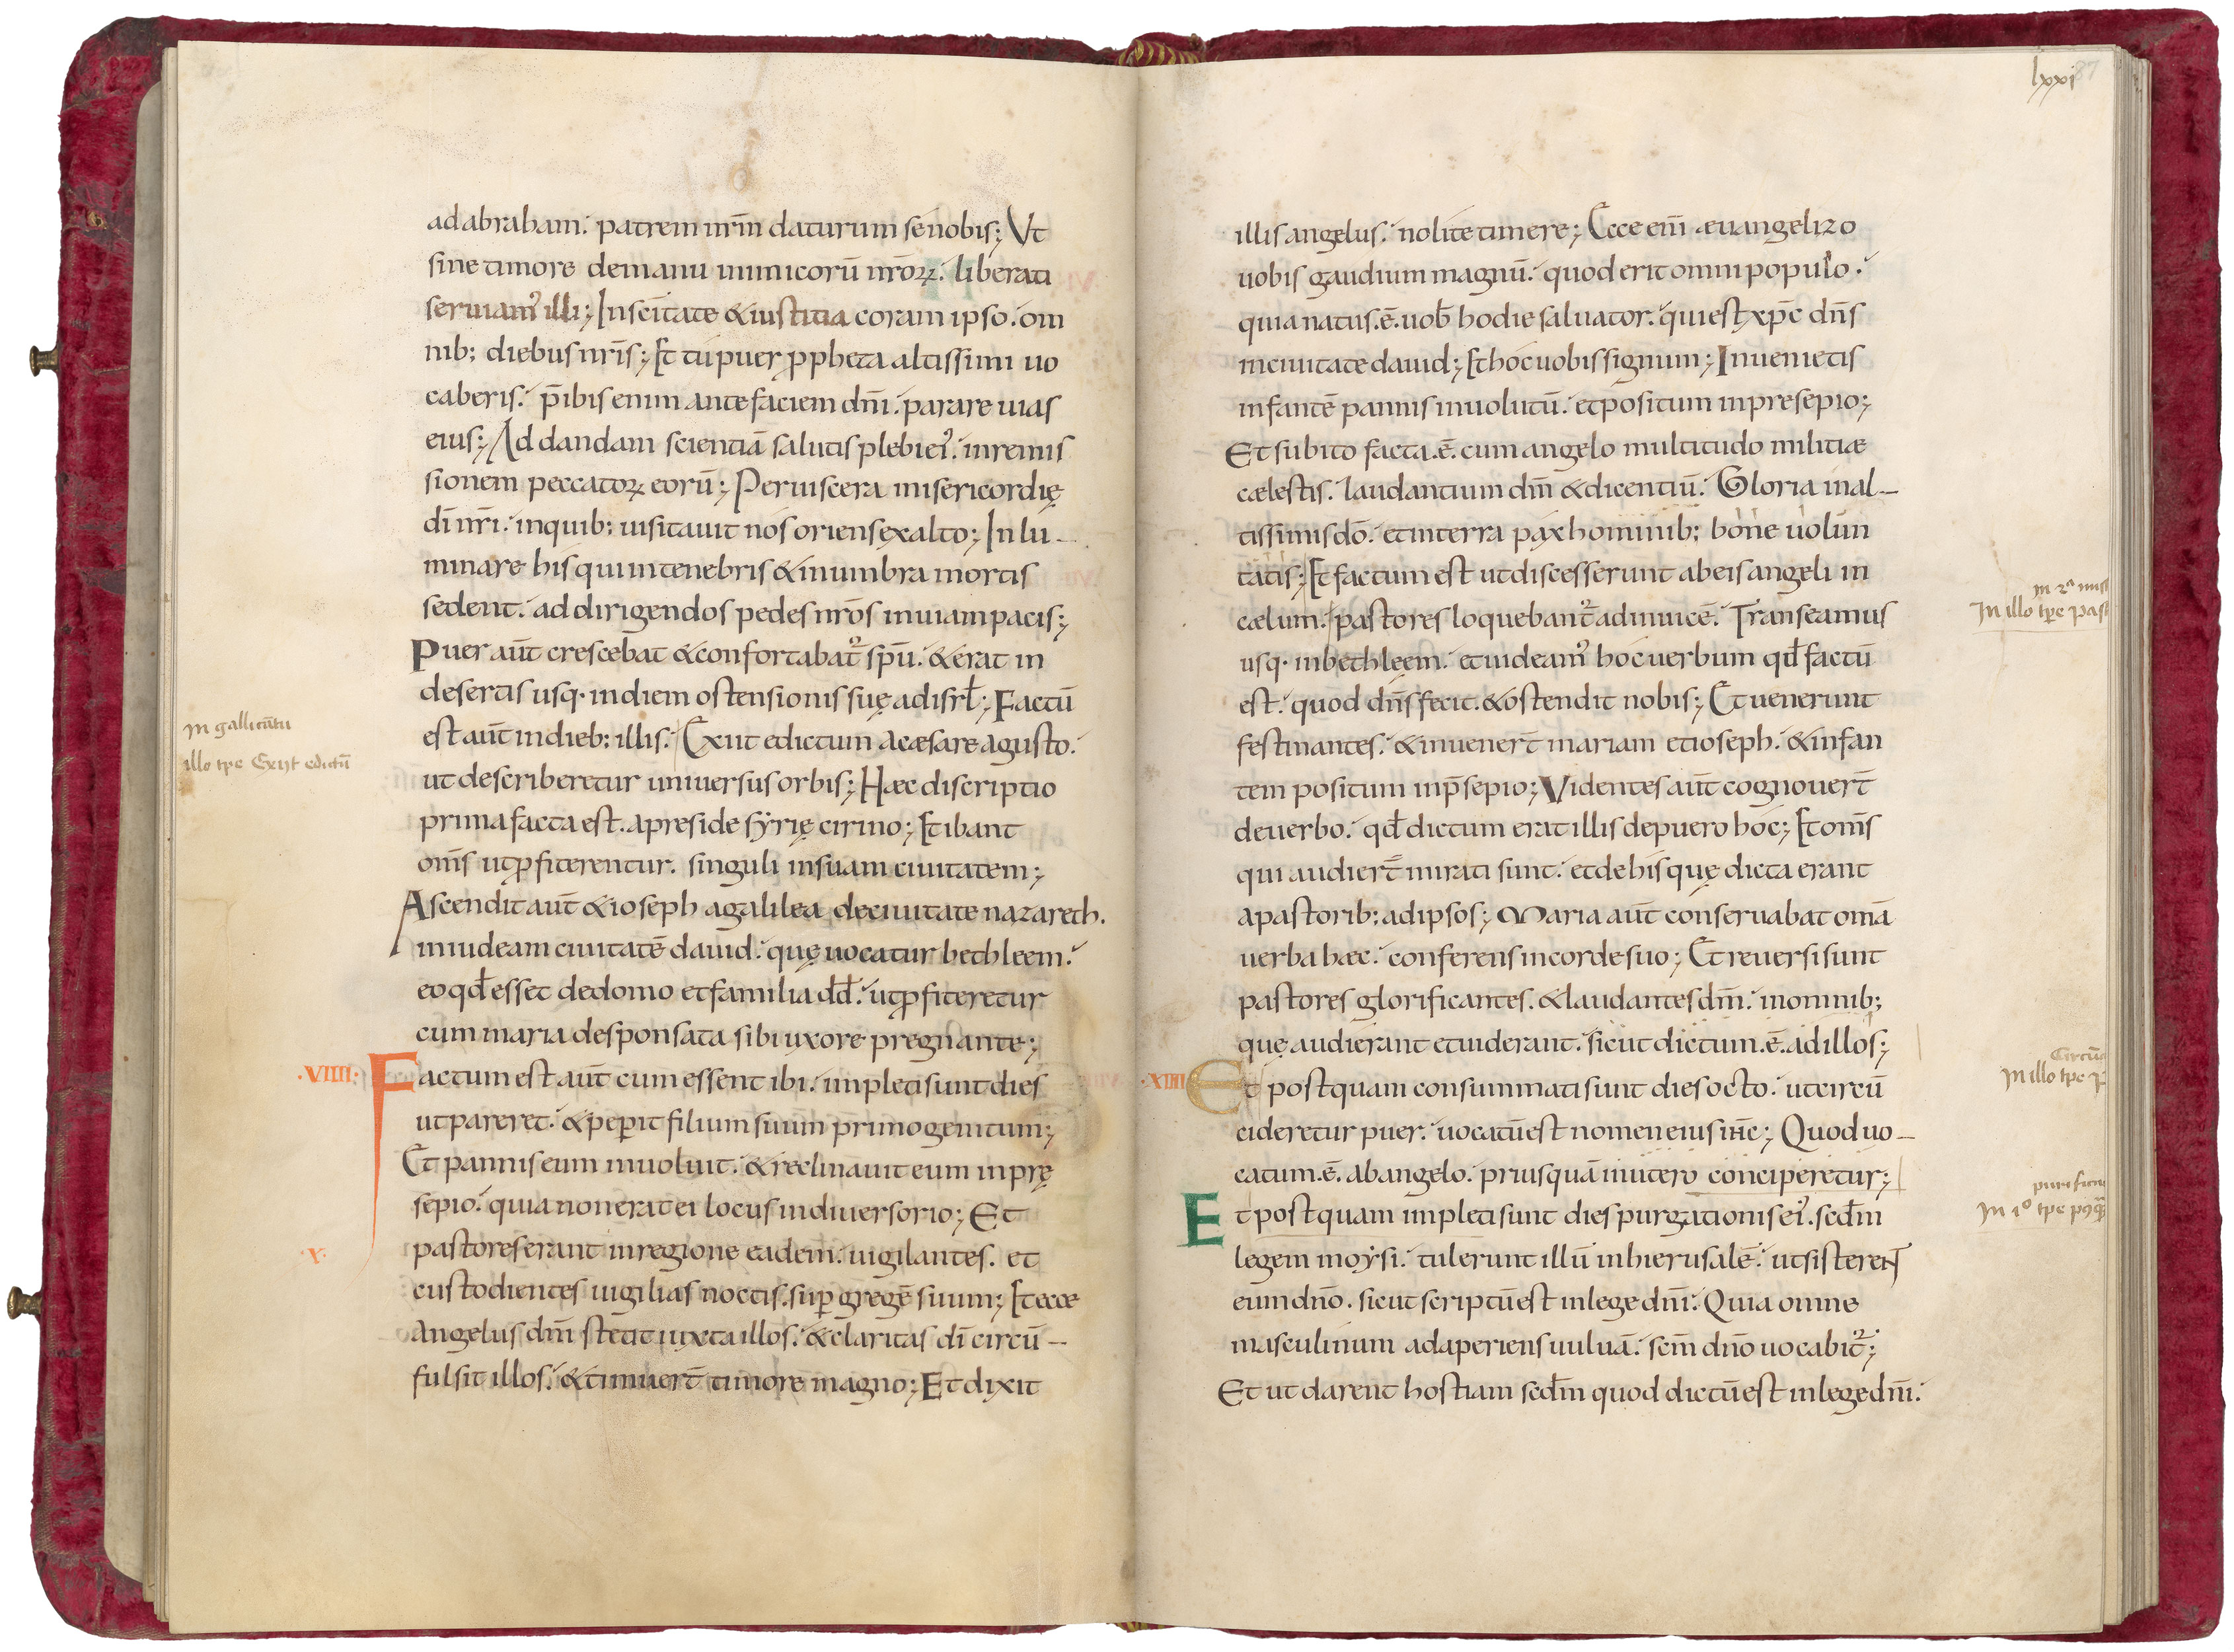 ad abraham. patrem nr̄m daturum se nobis; Vt
sine timore de manu inimicorū nr̄oꝝ. liberati
seruiamꝰ illi; In sc̄itate & iustitia coram ipso. om
nib; diebus nr̄is; Et tu puer ꝓpheta altissimi uo
caberis. p̄ibis enim ante faciem dn̄i. parare uias
eius; Ad dandam scientiā salutis plebi eiꝰ. in remis
sionem peccatoꝝ eorū; Per uiscera misericordię
dī nr̄i. in quib; uisitauit nos oriens ex alto; In lu-
minare his qui in tenebris & in umbra mortis
sedent. ad dirigendos pedes nr̄os in uiam pacis;
Puer aūt crescebat & confortabat᷒ sp̄u. & erat in
desertis usq. in diem ostensionis suę ad isrł; Factū
est aūt in dieb; illis. Exiit edictum a cæsare agusto.
In gallicātu
illo tp̄e Exiit edictū
ut describeretur uniuersus orbis; Hæc discriptio
prima facta est. a preside syrię cirino; Et ibant
om̄s ut ꝓfiterentur. singuli in suam ciuitatem;
Ascendit aūt & ioseph a galilea de ciuitate nazareth.
in iudeam ciuitatē dauid. quę uocatur bethleem.
eo qđ esset de domo et familia dđ. ut ꝓfiteretur
cum maria desponsata sibi uxore pregnante;
.VIIII. Factum est aūt cum essent ibi. impleti sunt dies
ut pareret. & peꝑit filium suum primogenitum;
Et pannis eum inuoluit. & reclinauit eum in prę
sepio. quia non erat ei locus in diuersorio; Et
.X. pastores erant in regione eadem. uigilantes. et
custodientes uigilias noctis. suꝑ gregē suum; Et ecce
angelus dn̄i stetit iuxta illos. & claritas dī circū-
fulsit illos. & timuer̄t timore magno; Et dixit
lxxi 87
illis angelus. nolite timere; Ecce eni̅ æuangelizo
uobis gaudium magnū. quod erit omni populo.
quia natus. ē. uob̄ hodie saluator. qui est xp̄c dn̄s
in ciuitate dauid; Et hoc uobis signum; Inuenietis
infantē pannis inuolutū. et positum in presepio;
Et subito facta. ē. cum angelo multitudo militiæ
cælestis. laudantium dm̄ & dicentiū. Gloria in al-
tissimis dō. et in terra pax hominib; bone uolun
tatis; Et factum est ut discesserunt ab eis angeli in
cælum. pastores loquebant᷒ ad inuicē. Transeamus
In illo tp̄e pas
usq. in bethleem. et uideamꝰ hoc uerbum qđ factū
est. quod dn̄s fecit. & ostendit nobis; Et uenerunt
festinantes. & inuener̄t mariam et ioseph. & infan
tem positum in p̄sepio; Videntes aūt cognouer̄t
de uerbo. qđ dictum erat illis de puero hoc; Et om̄s
qui audier̄t mirati sunt. et de his quę dicta erant
a pastorib; ad ipsos; Maria aūt conseruabat om̄a
uerba hæc. conferens in corde suo; Et reuersi sunt
pastores glorificantes. & laudantes dm̄. in omnib;
quę audierant et uiderant. sicut dictum. ē. ad illos;
Circū
In illo tp̄e p
.XIIII Et postquam consummati sunt dies octo. ut circū
cideretur puer. uocatū est nomen eius iħc; Quod uo-
catum. ē. ab angelo. priusquā in utero conciperetur;
purific
Et postquam impleti sunt dies purgationis eiꝰ. scdm̄
legem moysi. tulerunt illū in hierusalē. ut sisterent
eum dn̄o. sicut scriptū est in lege dn̄i. Quia omne
masculinum adaperiens uuluā. scm̄ dn̄o uocabit᷒;
Et ut darent hostiam scdm̄ quod dictū est in lege dn̄i.